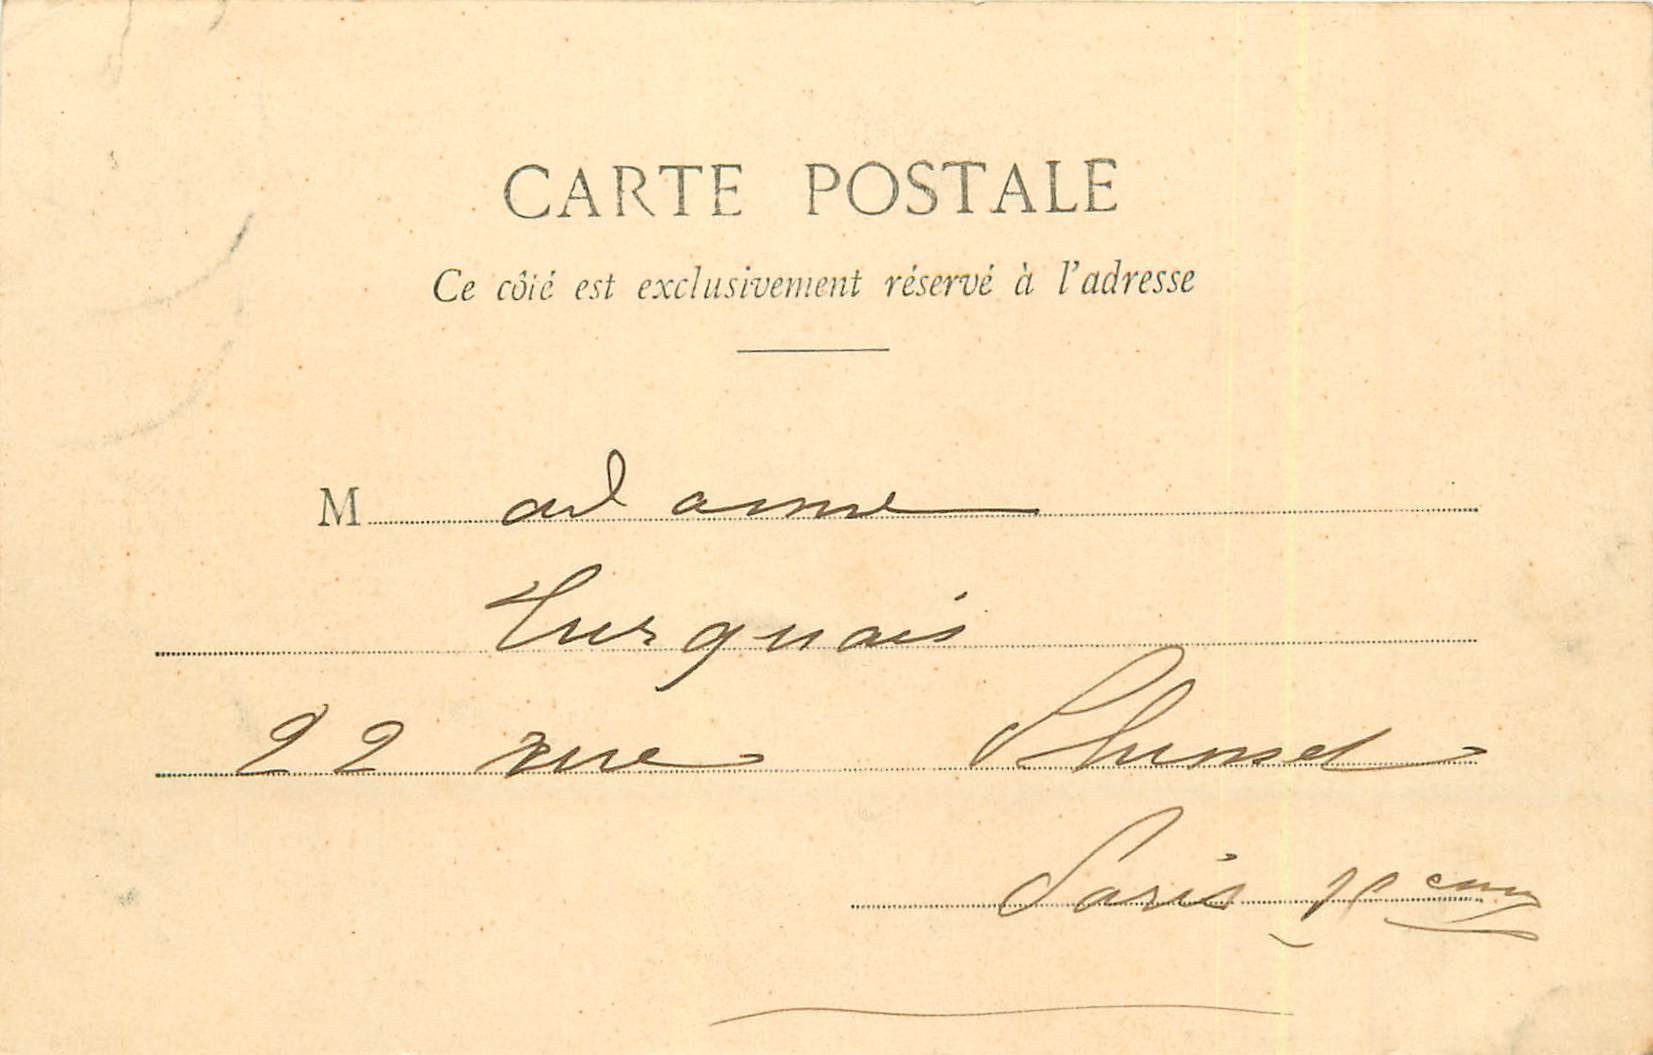 CARTE POSTALE
Ce côté est exclusivement réservé à l'adresse
Madame
Turquais
22 rue Plumet
Paris